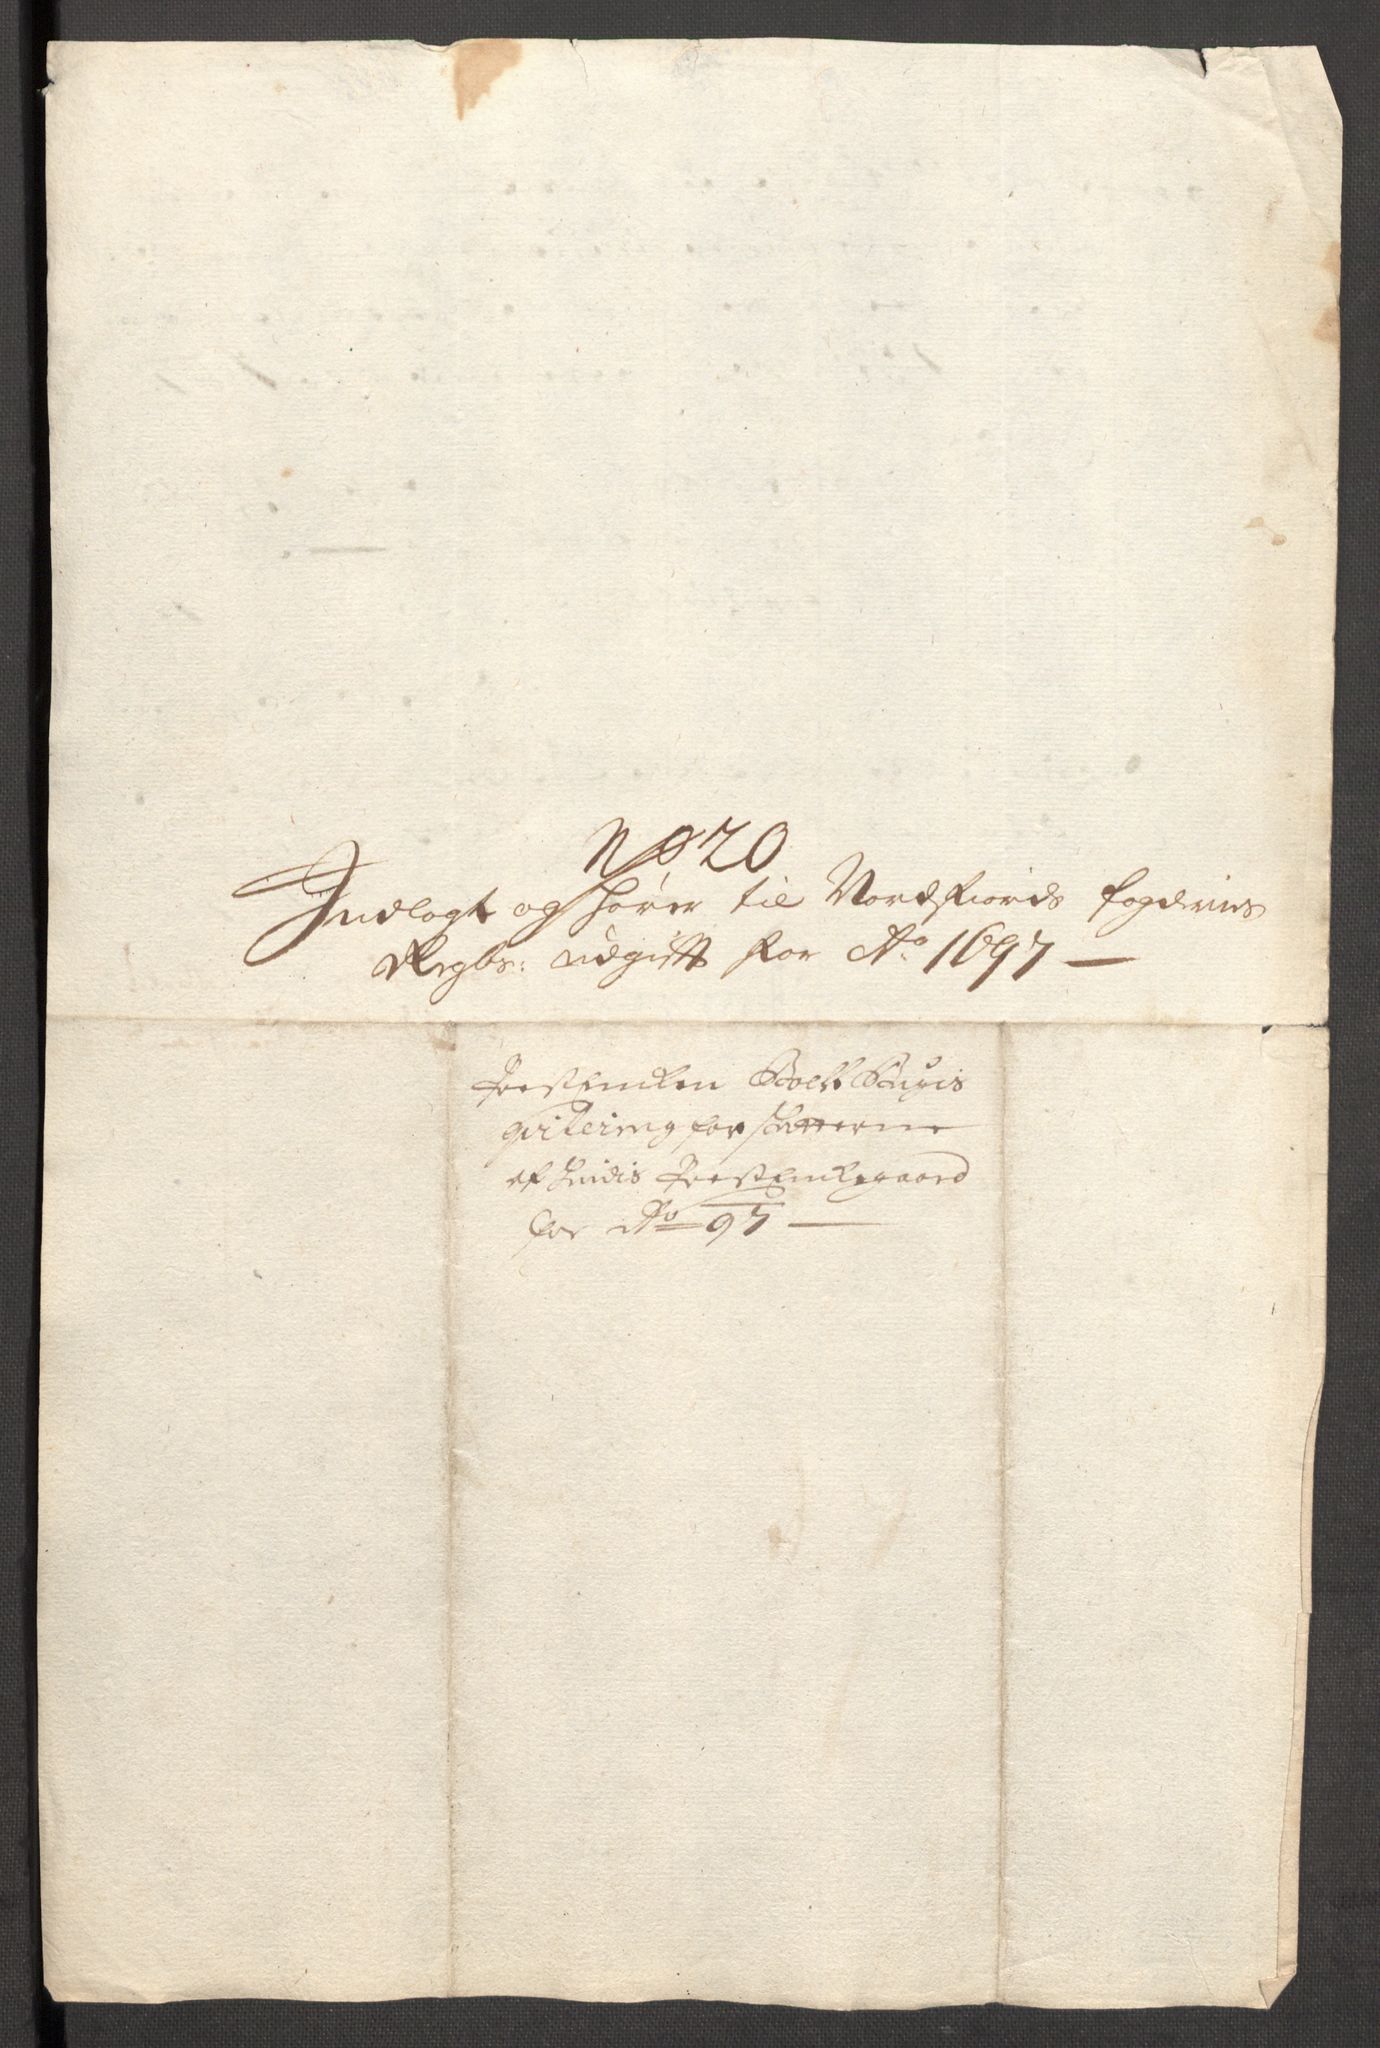 No 20
Indlagt og hører til Nordfiords fogderies
Regbs: udgifft for Ao 1697 —
Prestencken
qvitering for schatterne
af hindis Prestenckegaard
for Ao 97 —